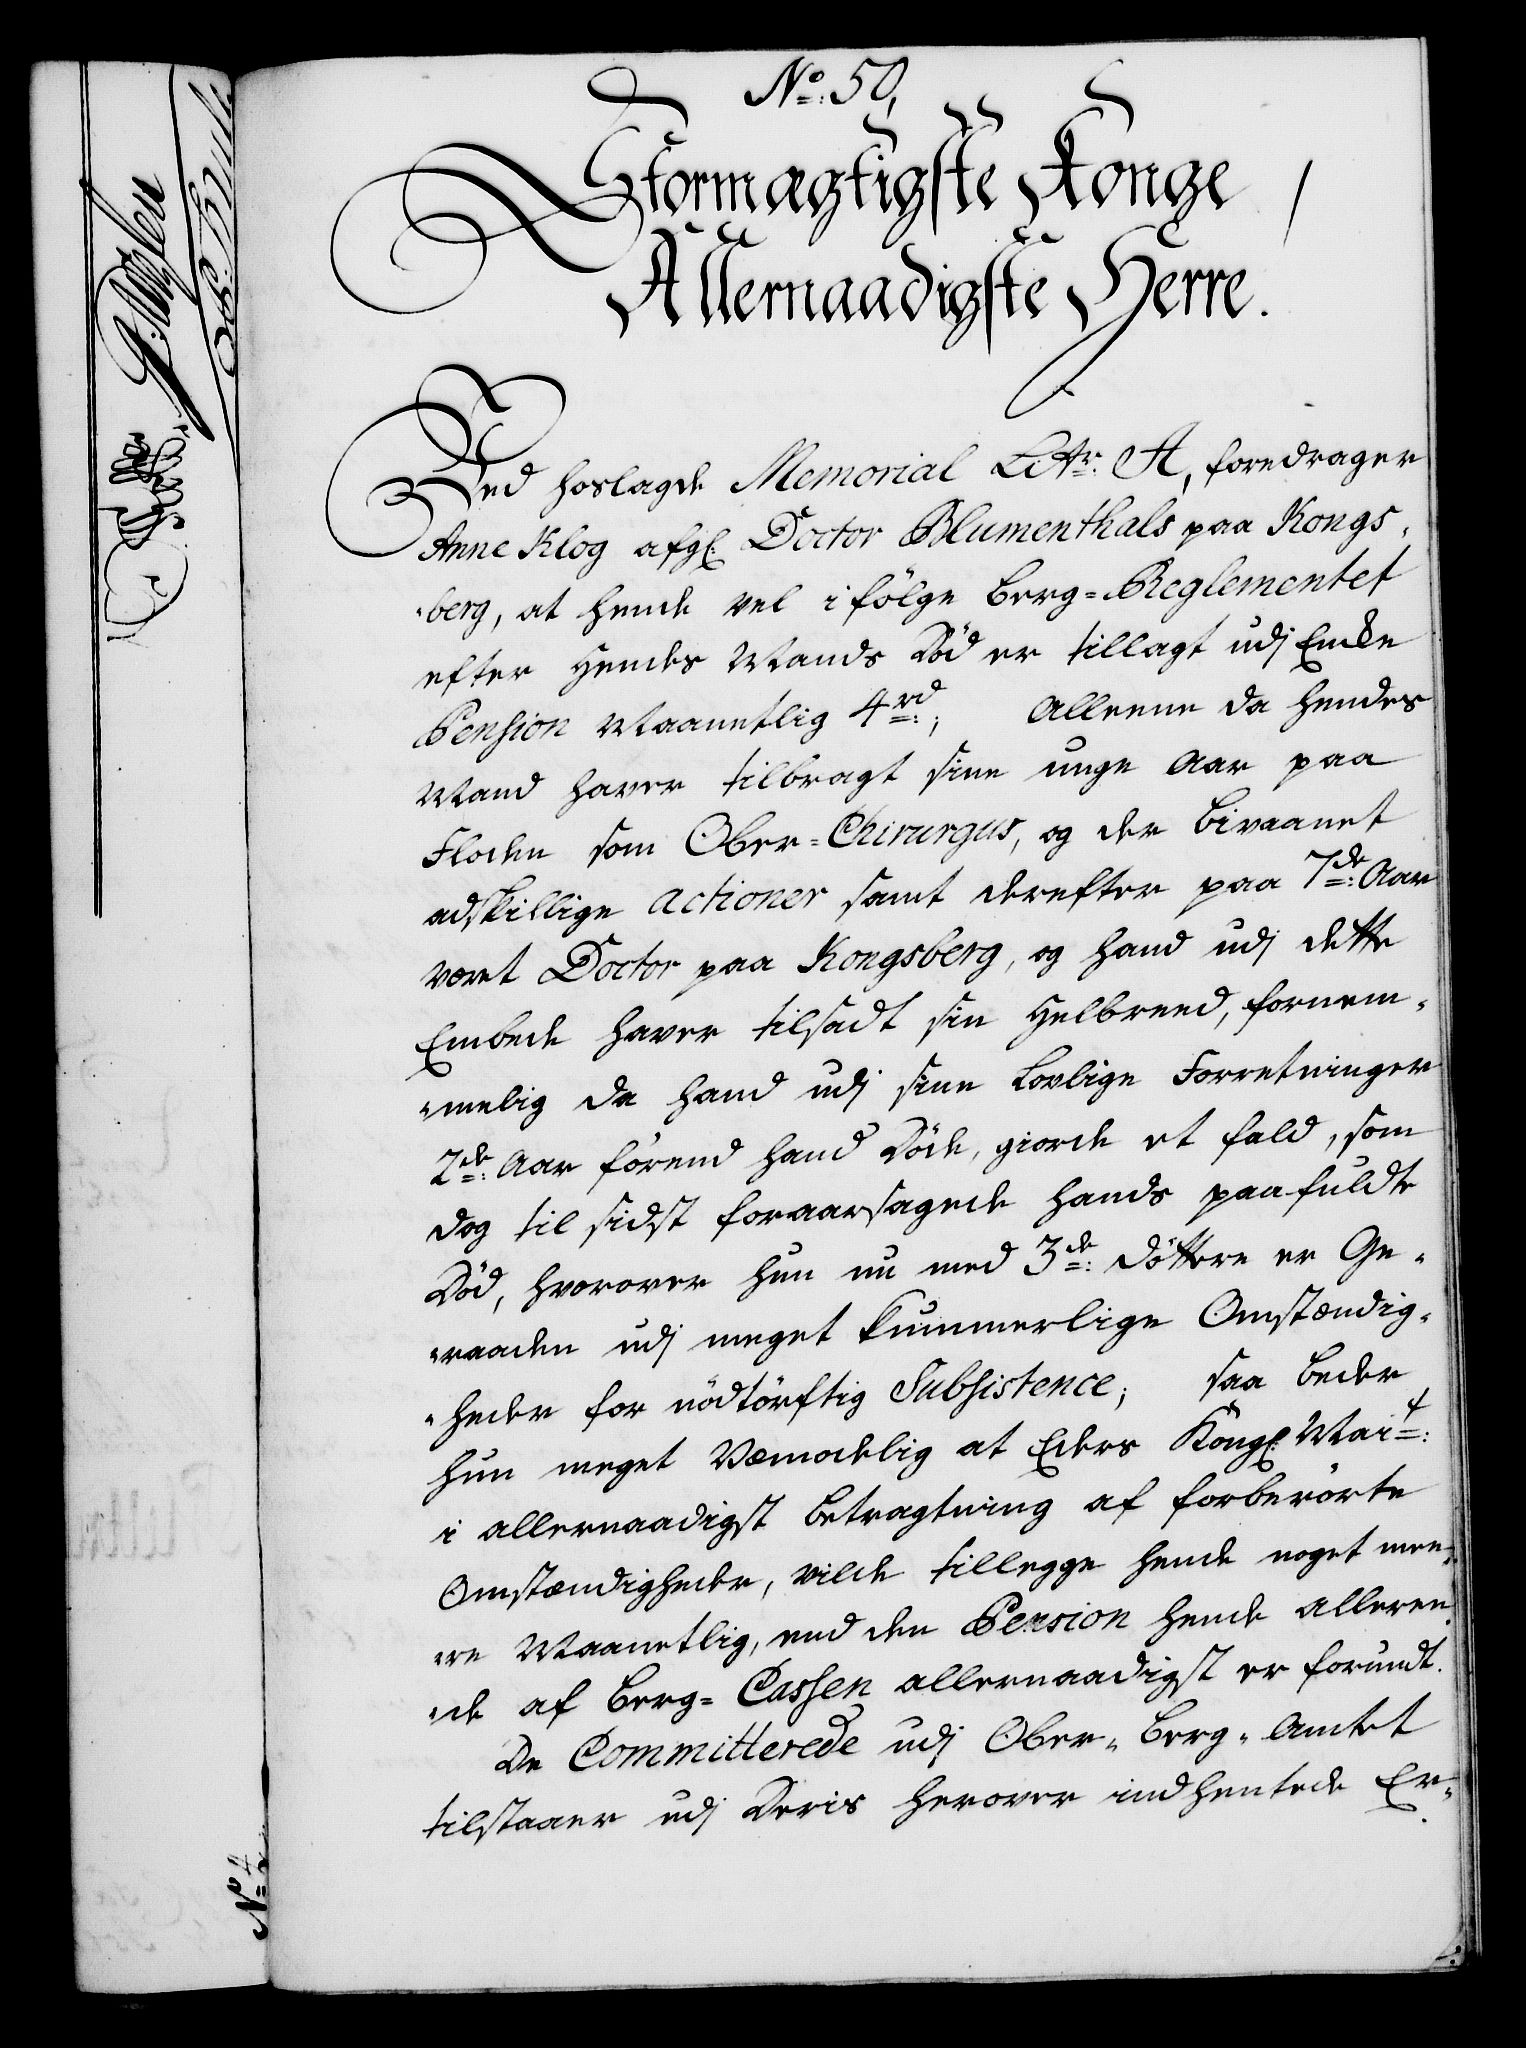 No: 50,
Stormægtigste Konge
Allernaadigste Herre.
Ved hoslagde Memorial Litr: A, foredrager
Anne Klog afgl: Doctor Blumenthals paa Kongs-
berg, at hende vel i følge Berg-Reglementet
efter Hendes Mands Död er tillagt udj Encke
Pension Maanetlig 4rd:; Alleene da hendes
Mand haver tilbragt sine unge Aar paa
Floden som Ober-Chirurgus, og der bivaanet
adskillige actioner samt derefter paa 7de: Aar
været Doctor paa Kongsberg, og hand udj dette
Embede haver tilsadt sin Helbreed, fornem-
melig da hand udj sine Lovlige Forretninger
2de: Aar förend hand Döde, giorde et fald, som
dog til sidst foraarsagede hands paafuldte
Död, hvorover hun nu med 3de: döttre er Ge-
raaden udj meget kummerlige Omstændig-
heder for nödtörftig Subsistence; saa beder
hun meget Væmodelig at Eders Kongl: Mait:
i allernaadigst betragtning af forberörte
Omstændigheder, vilde tillegge hende noget mee-
re Maanetlig, end den Pension hende alleree-
de af Berg-Cassen allernaadigst er forundt.
De Committerede udj Ober-Berg-Amtet
tilstaaer udj Deris herover indhentede Er-
No 4